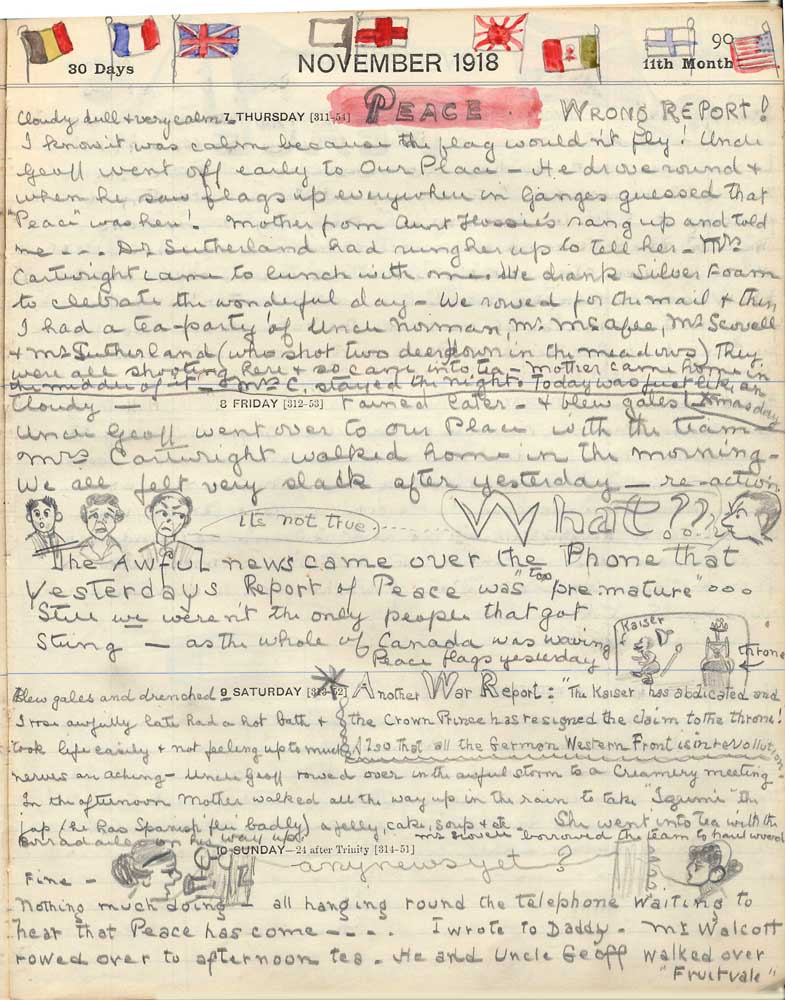 90
30 Days
NOVEMBER 1918
11th Month
Cloudy dull & very calm 7 THURSDAY [311-54] PEACE WRONG REPORT!
I know it was calm because the flag wouldn't fly! Uncle
Geoff went off early to Our Place – He drove round &
when he saw flags up everywhere in Ganges guessed that
"Peace" was here! Mother from Aunt Flossie's rang up and told
me - - - Dr Sutherland had rung her up to tell her – Mrs
Cartwright came to lunch with me. We drank Silver Foam
to clebrate the wonderful day – We rowed for the mail & then
I had a tea-party of Uncle Norman, Mr McAfee, Mr Scovell
& Mr Sutherland (who shot two deer down in the meadows) They
were all shooting here & so came into tea – Mother came home in
the middle of it – Mrs C. stayed the night. Today was just like an
Xmas day
Cloudy — 8 FRIDAY [312-53] rained later – & blew gales
Uncle Geoff went over to our Place with the team
Mrs Cartwright walked home in the morning –
We all felt very slack after yesterday – re-action
its not true What??
The Awful news came over the Phone that
Yesterdays Report of Peace was "too pre mature" ooo
Still we weren't the only people that got
Stung – as the whole of Canada was waving
Peace flags yesterday
Kaiser
throne
Blew gales and drenched 9 SATURDAY [313-52] Another War Report: "The Kaiser has abdicated and
I rose awfully late had a hot bath & the Crown Prince has resigned the claim to the throne!
took life easily & not feeling up to much Also that all the German Western Front is in revollution
nerves an aching – Uncle Geoff rowed over in the awful storm to a Creamery meeting
In the afternoon Mother walked all the way up in the rain to take "Izumi" the
jap (he has Spanish 'flu' badly) a jelly, cake, soup & etc. She went into tea with the
on his way up. Mr Scovell borrowed the team to haul wood
10 SUNDAY—24 after Trinity [314-51]
any news yet?
Fine –
Nothing much doing – all hanging round the telephone waiting to
hear that Peace has come – – – – I wrote to Daddy – Mr Walcott
rowed over to afternoon tea. He and Uncle Geoff walked over
"Fruitvale"